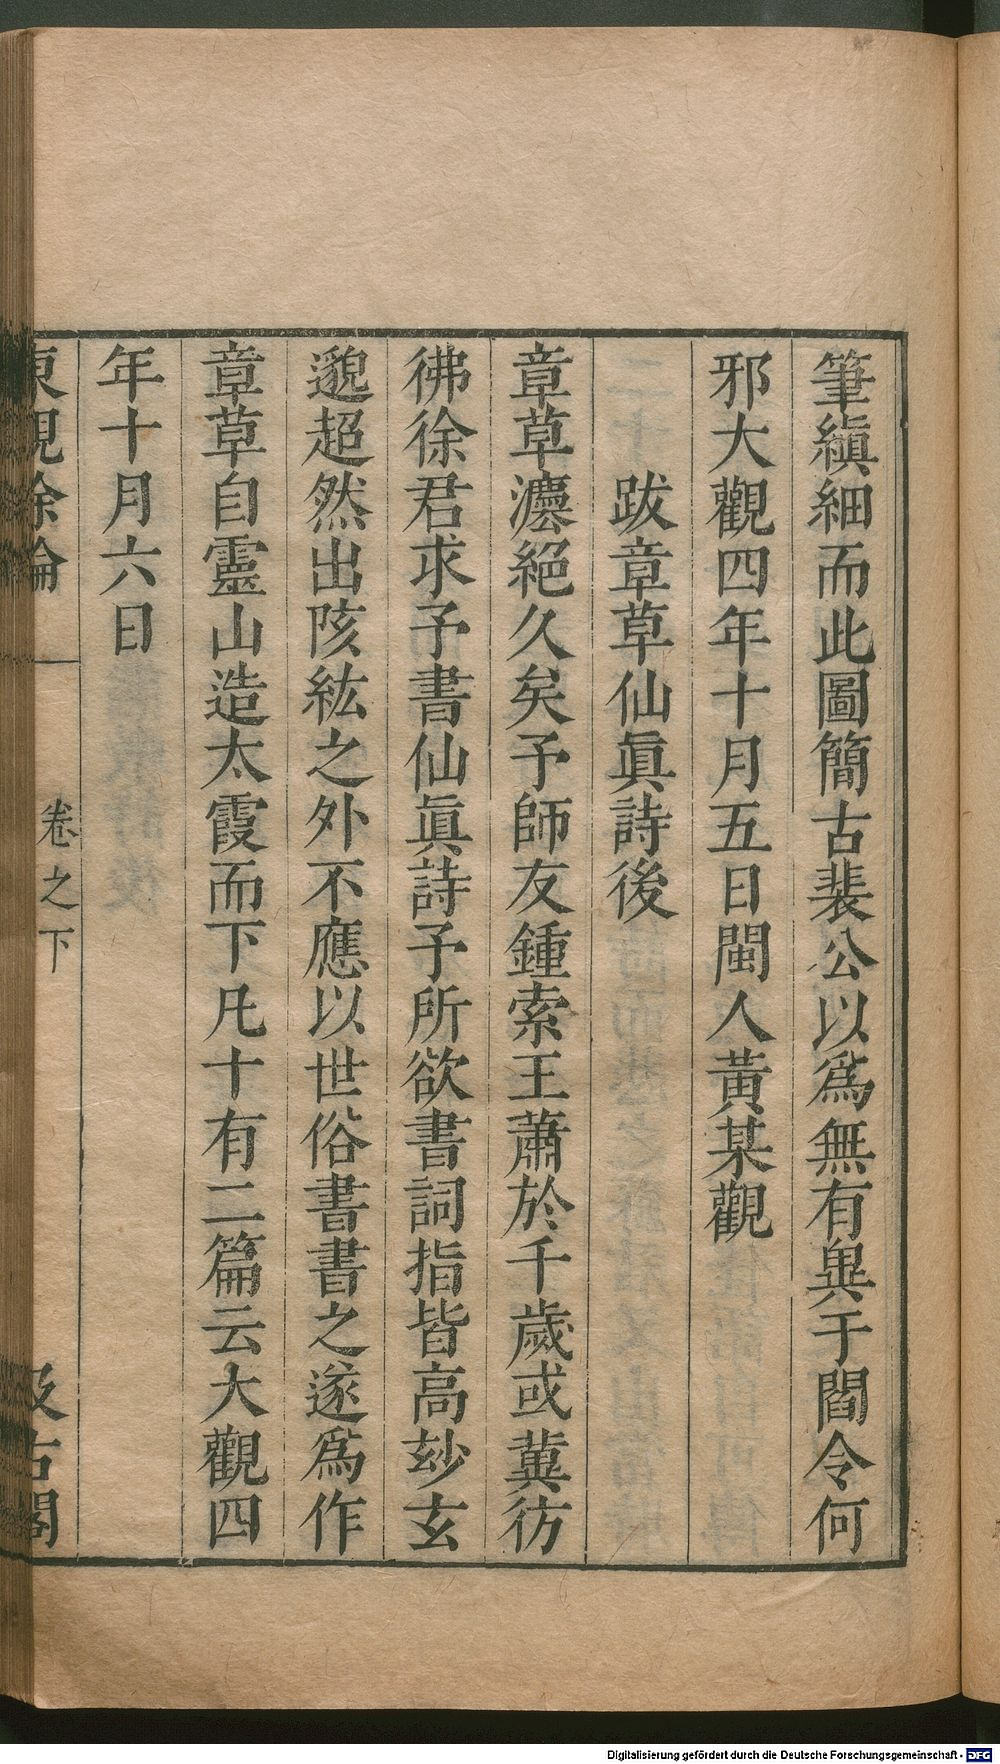 筆縝細而此圖簡古裴公以爲無有異于閻令何
邪大觀四年十月五日閩人黃某觀
跋章草仙眞詩後
章草灋絕久矣予師友鍾索王蕭於千歲或兾彷
彿徐君求予書仙眞詩予所欲書詞指皆高玅玄
邈超然出陔紘之外不應以世俗書書之遂爲作
章草自靈山造太霞而下凡十有二篇云大觀四
年十月六日
東觀餘論
卷之下
汲古閣
Digitalisierung gefördert durch die Deutsche Forschungsgemeinschaft - DFG